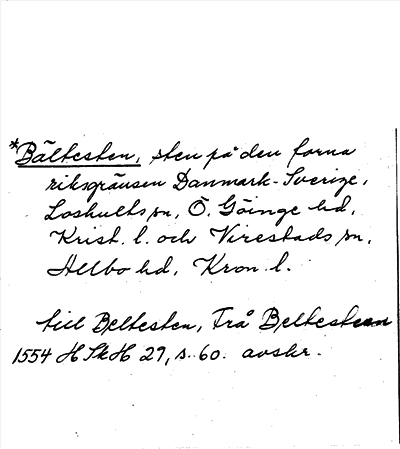 *Bältesten, sten på den forna
riksgränsen Danmark-Sverige,
Loshults sn, Ö. Göinge hd,
Krist. l. och Virestads sn,
Allbo hd, Kron. l.
till Beltesten, Frå Beltesteen
1554 HSkH 29, s. 60. avskr.